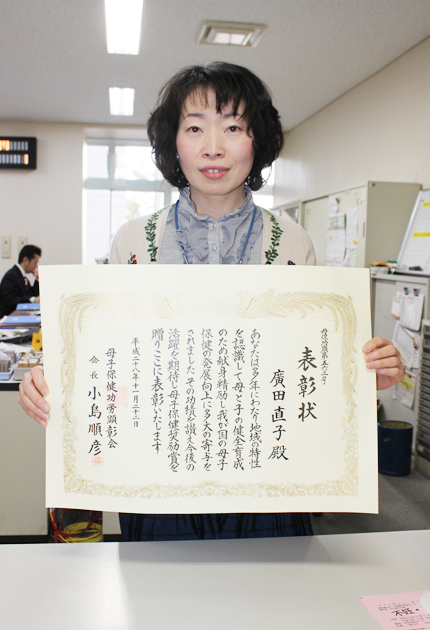 表彰状
廣田直子殿
あなたは多年にわたり地域の特性
を認識して母と子の健全育成
のため献身精励し我が国の母子
保健の発展向上に多大の寄与を
されましたその功績を讃え今後の
活躍を期待し母子保健奨励賞を
贈りここに表彰いたします
平成二十八年十一月二十二日
母子保健功労顕彰会
会長 小島順彦
不妊・